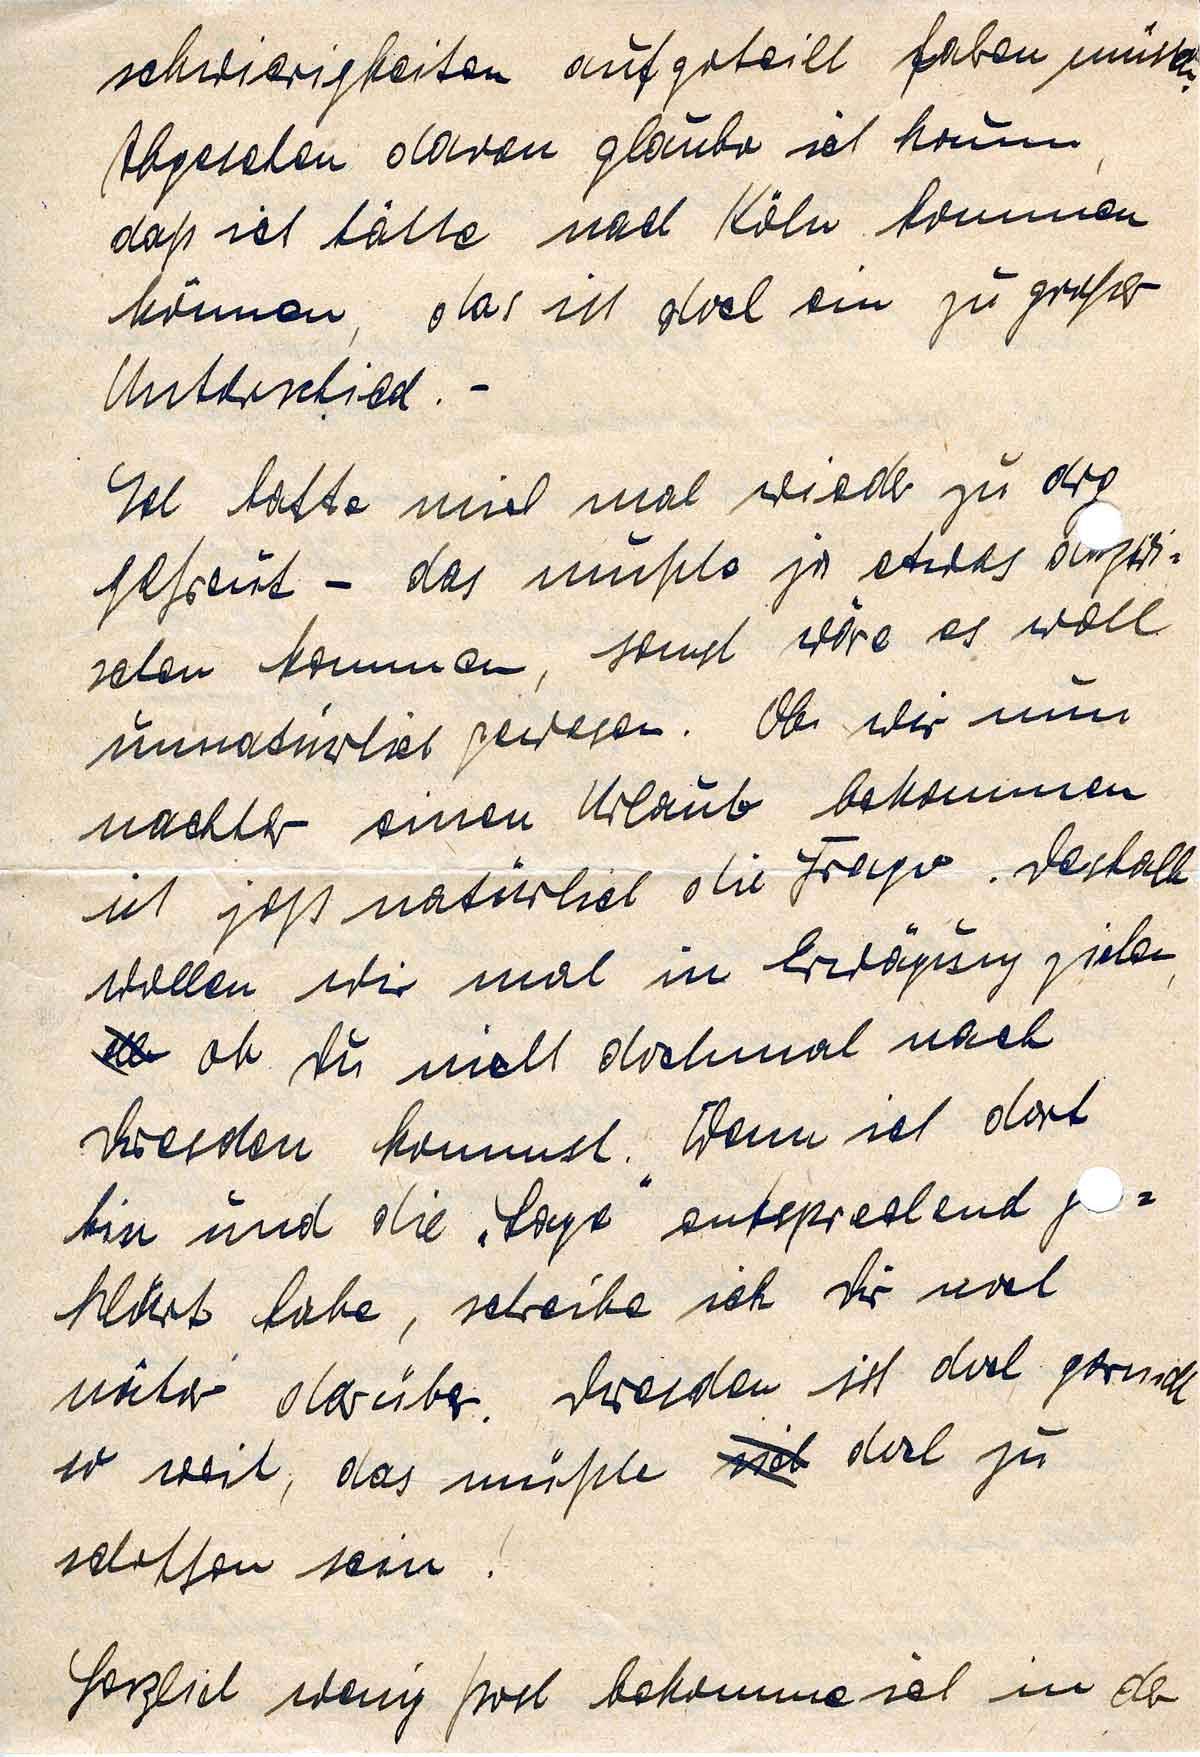 schwierigkeiten aufgeteilt haben müssen.
Abgesehen davon glaube ich kaum,
daß ich hätte nach Köln kommen
können, das ist doch ein zu großer
Unterschied. -
Ich hatte mich mal wieder zu arg
gefreut - das mußte ja etwas dazwi=
schen kommen, sonst wäre es wohl
unnatürlich gewesen. Ob wir nun
nachher einen Urlaub bekommen
ist jetzt natürlich die Frage. Deshalb
wollen wir mal in Erwägung ziehen,
ob Du nicht dochmal nach
Dresden kommst. Wenn ich dort
bin und die „Lage" entsprechend ge=
klärt habe, schreibe ich Dir noch
näher darüber. Dresden ist doch garnicht
so weit, das müßte doch zu
schaffen sein!
Herzlich wenig Post bekomme ich in der